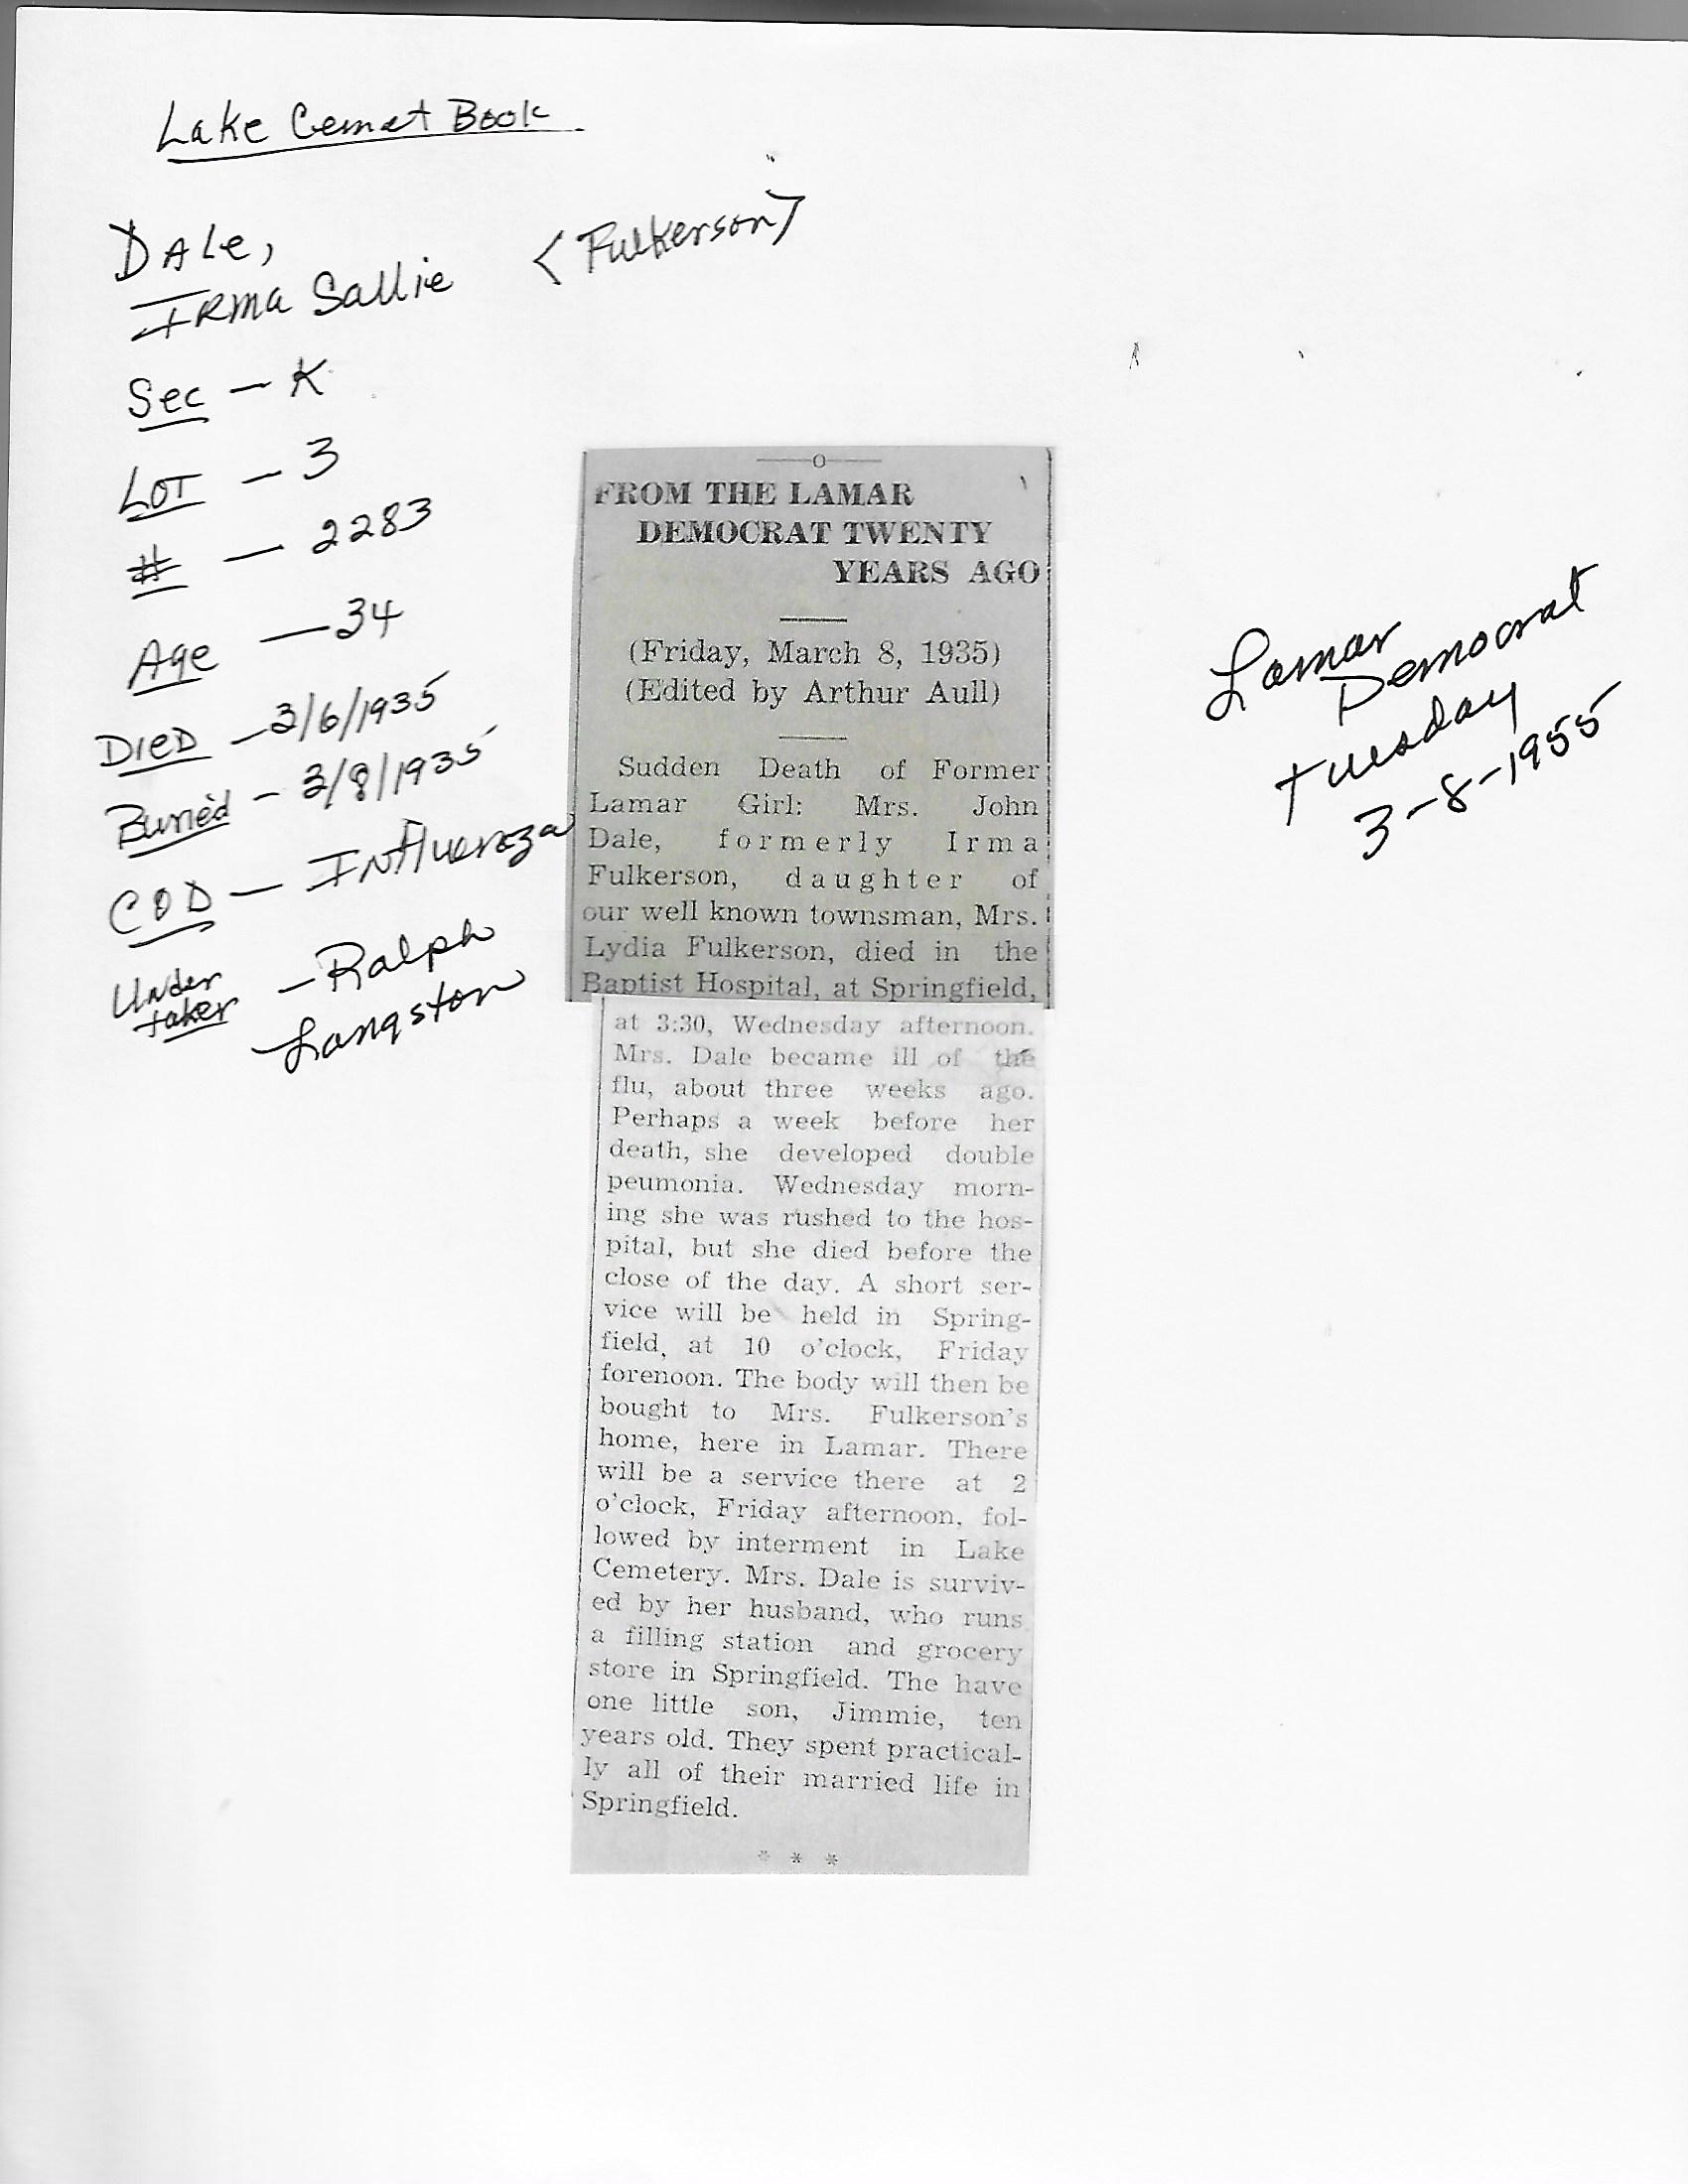 Lake Cemet Book
Dale,
Irma Sallie <Fulkerson>
Sec - K
Lot - 3
# - 2283
Age - 34
Died - 3/6/1935
Buried - 3/8/1935
COD - Influenza
Under
taker - Ralph
Langston
—o—
FROM THE LAMAR
DEMOCRAT TWENTY
YEARS AGO
(Friday, March 8, 1935)
(Edited by Arthur Aull)
Sudden Death of Former
Lamar Girl: Mrs. John
Dale, formerly Irma
Fulkerson, daughter of
our well known townsman, Mrs.
Lydia Fulkerson, died in the
Baptist Hospital, at Springfield,
at 3:30, Wednesday afternoon.
Mrs. Dale became ill of the
flu, about three weeks ago.
Perhaps a week before her
death, she developed double
peumonia. Wednesday morn-
ing she was rushed to the hos-
pital, but she died before the
close of the day. A short ser-
vice will be held in Spring-
field, at 10 o'clock, Friday
forenoon. The body will then be
bought to Mrs. Fulkerson's
home, here in Lamar. There
will be a service there at 2
o'clock, Friday afternoon, fol-
lowed by interment in Lake
Cemetery. Mrs. Dale is surviv-
ed by her husband, who runs
a filling station and grocery
store in Springfield. The have
one little son, Jimmie, ten
years old. They spent practical-
ly all of their married life in
Springfield.
* * *
Lamar
Democrat
Tuesday
3-8-1955